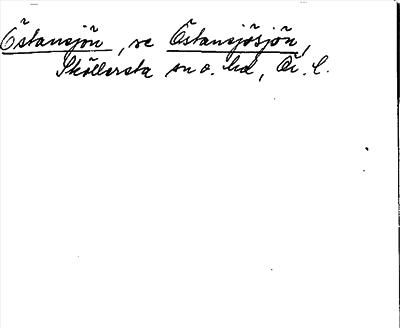 Östansjön, se Östansjösjön,
Sköllersta sn o. hd, Ör. l.